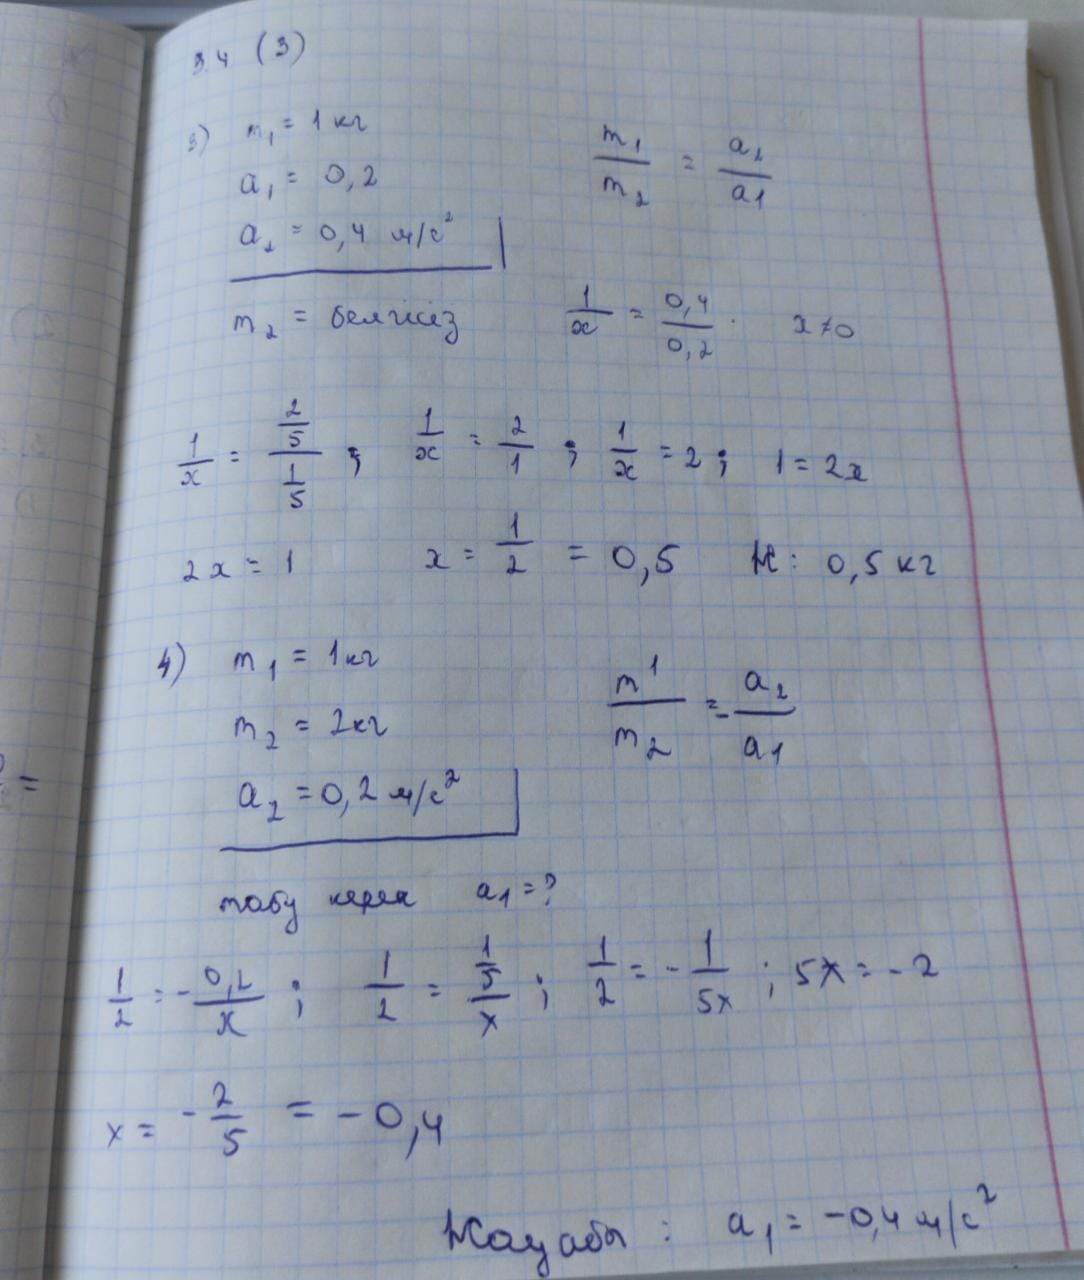 3.4 (3)
3) m₁ = 1 кг
m₁/m₂ = a₂/a₁
a₁ = 0,2
a₂ = 0,4 м/с²
m₂ = белгісіз
1/x = 0,4/0,2 . x≠0
1/x = (2/5)/(1/5) ; 1/x = 2/1 ; 1/x = 2 ; 1 = 2x
2x = 1 x = 1/2 = 0,5 Ж: 0,5 кг
4) m₁ = 1кг
m₂ = 2кг
m¹/m₂ = -a₂/a₁
a₂ = 0,2 м/с²
табу керек a₁ = ?
1/2 = -0,2/x ; 1/2 = (1/5)/x ; 1/2 = -1/5x ; 5x = -2
x = -2/5 = -0,4
Жауабы : a₁ = -0,4 м/с²